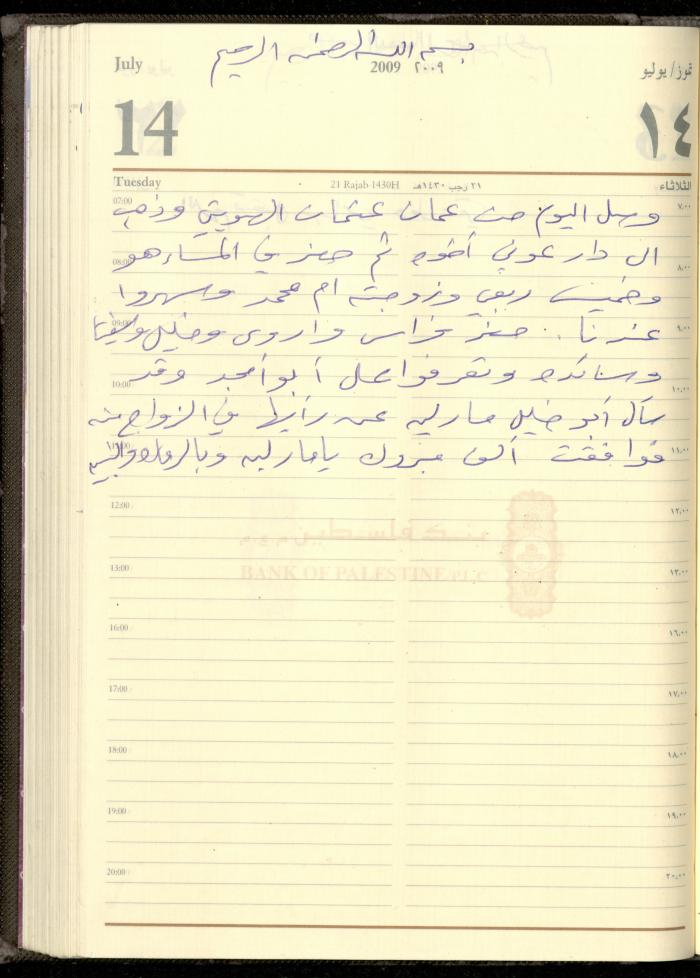 بسم الله الرحمن الرحيم
July 2009 ٢٠٠٩ تموز/يوليو
14 ١٤
Tuesday 21 Rajab 1430H ٢١ رجب ١٤٣٠هـ الثلاثاء
07:00 وصل اليوم من عمان عثمان الهويتي وذهب ٧,٠٠
08:00 الى دار عوني أخوه ثم حضر في المساء هو ٨,٠٠
وخميس ربعي وزوجته ام محمد وسهروا
09:00 عندنا .. حضر فراس واروى وخليل ٩,٠٠
10:00 وساندي وتعرفوا على أبو أمجد وقد ١٠,٠٠
سأل أبو خليل مارليه عن رأيها في الزواج منه
11:00 فوافقت ألف مبروك يا مارليه وبالرفاه والبنين ١١,٠٠
12:00 ١٢,٠٠
بنك فلسطين م.ع.م
13:00 ١٣,٠٠
BANK OF PALESTINE PLC
16:00 ١٦,٠٠
17:00 ١٧,٠٠
18:00 ١٨,٠٠
19:00 ١٩,٠٠
20:00 ٢٠,٠٠